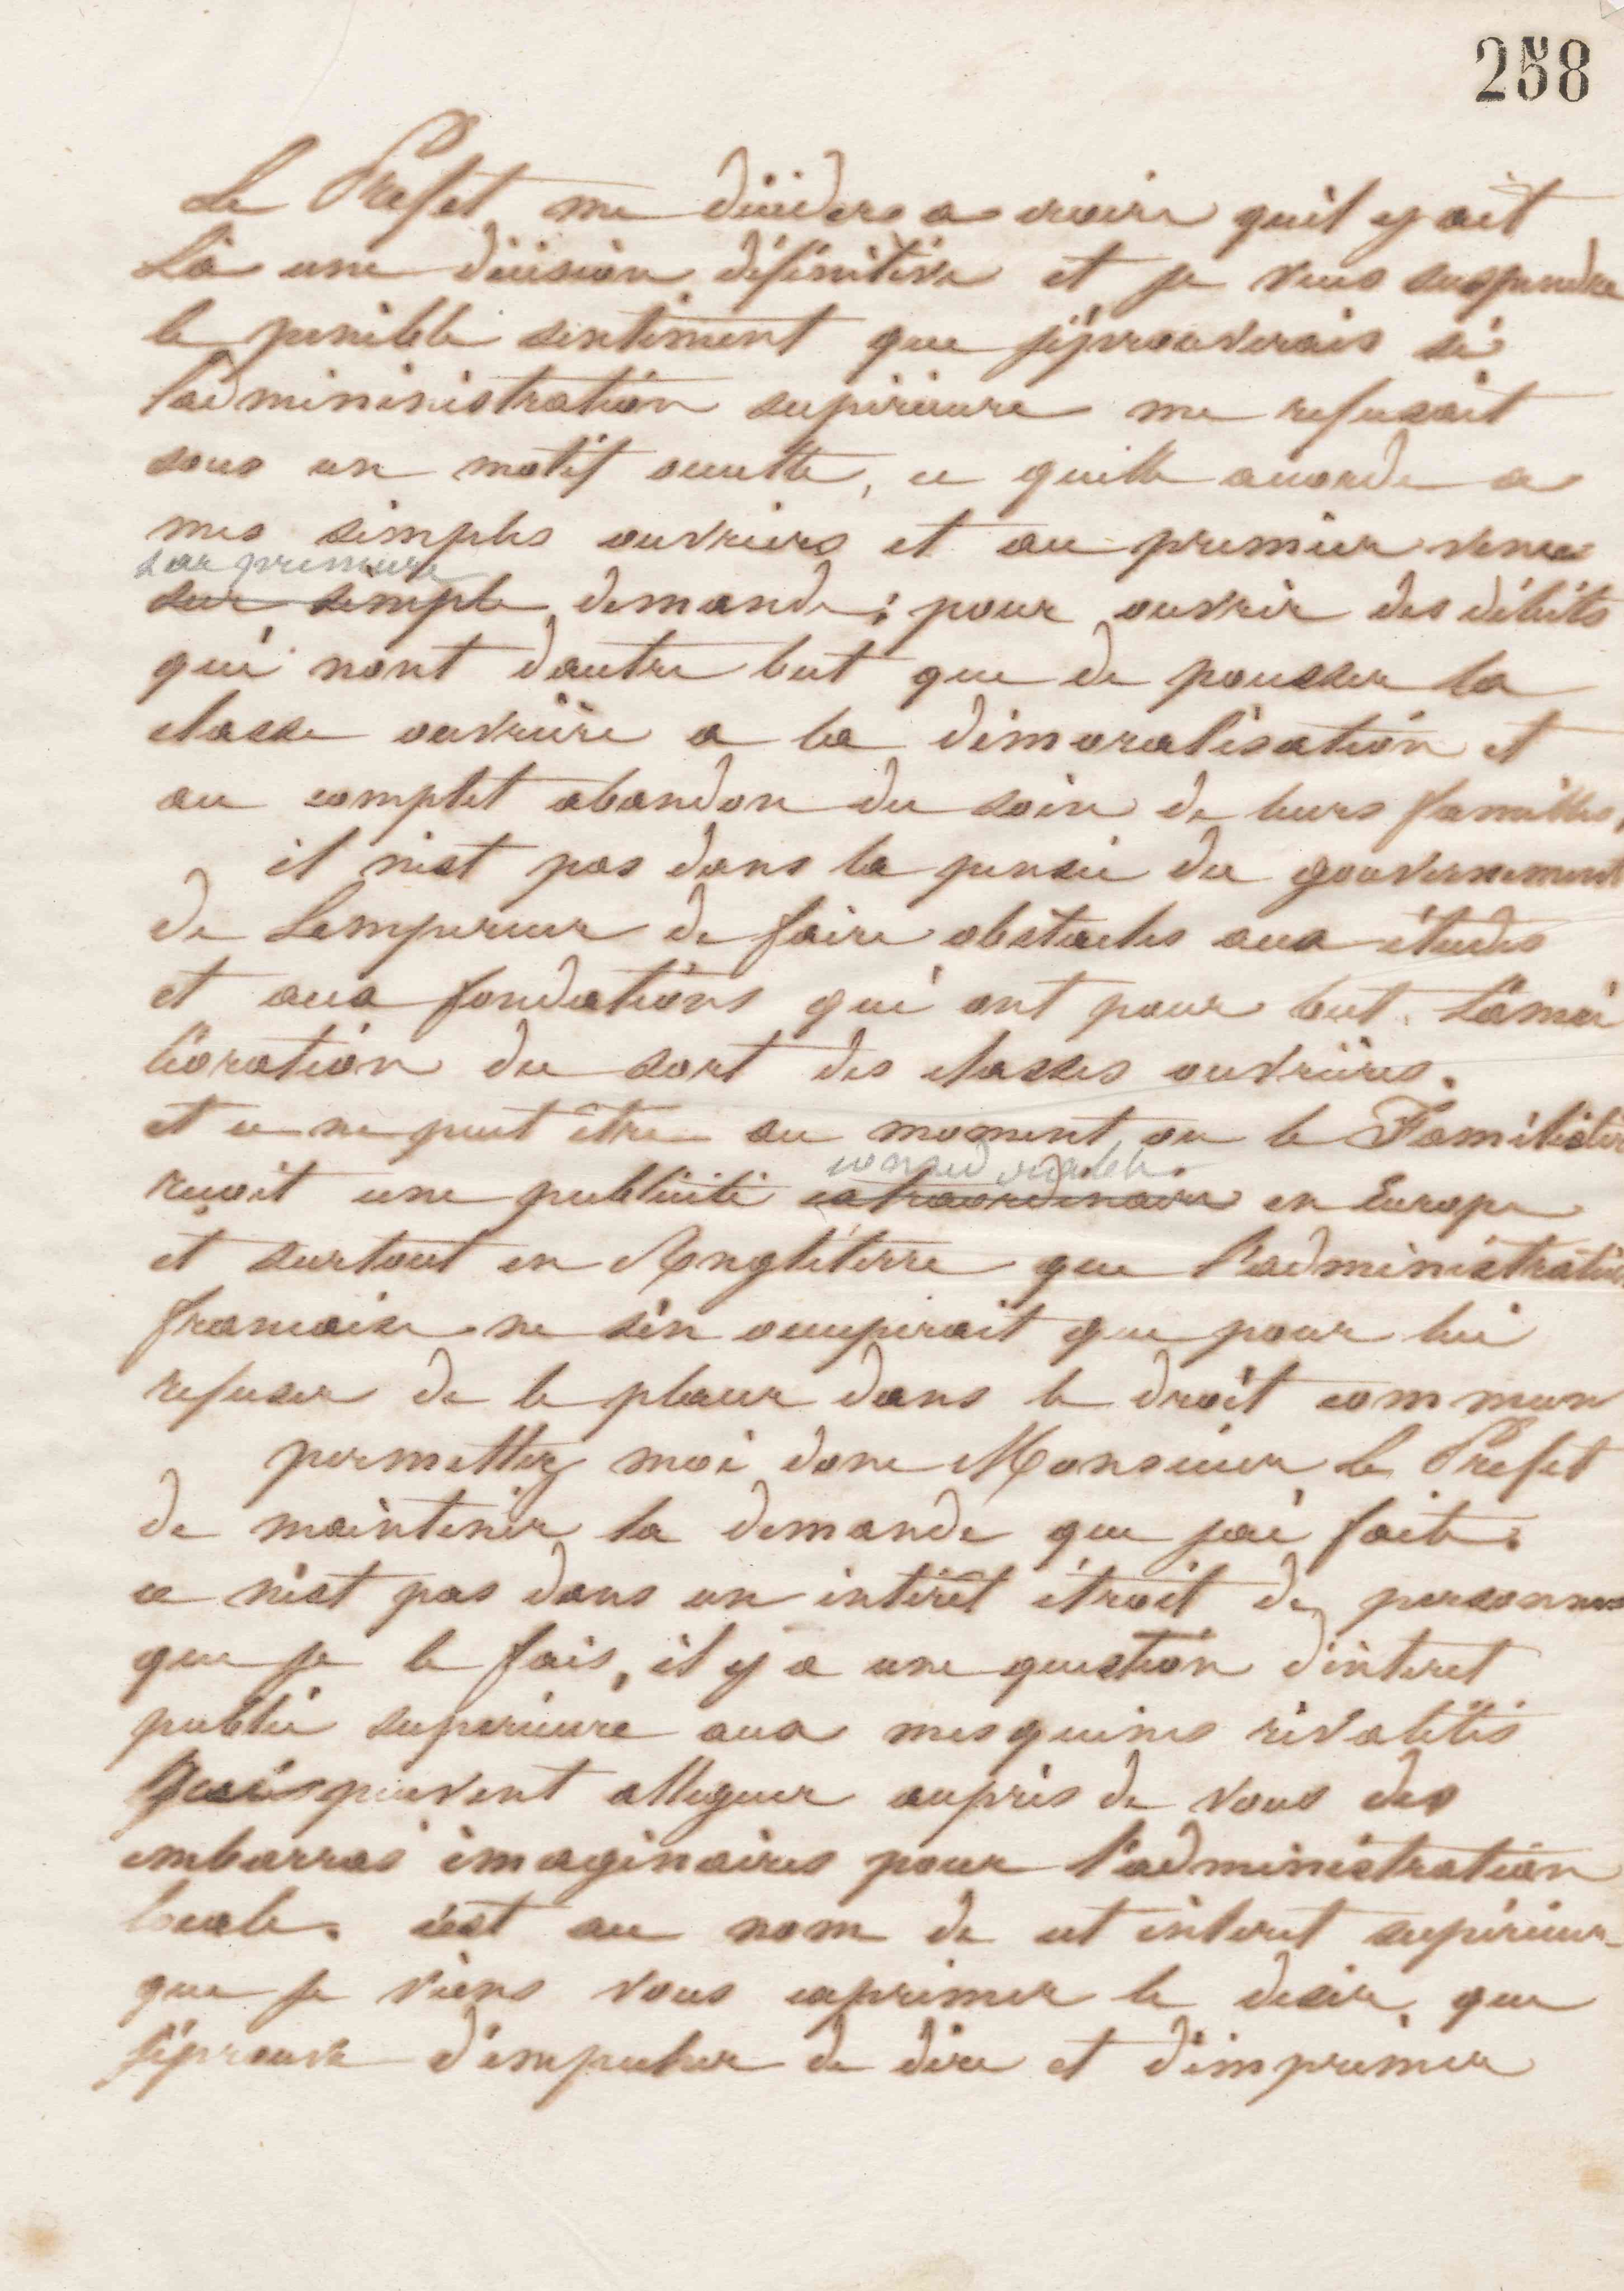 258
Le Prefet me decidera a croire quil y ait
Là une décision définitive et je veux suspendre
le penible sentiment que j'éprouverais si
l'admininistration supérieure me refusait
sous un motif occulte, ce quelle accorde a
mes simples ouvriers et au premier venu
sur premiere
sur simple demande; pour ouvrir des débits
qui nont dautre but que de pousser la
classe ouvrière a la démoralisation et
au complet abandon du soin de leurs familles,
il nest pas dans la pensée du gouvernement
de Lempereur de faire obstacles aux études
et aux fondations qui ont pour but Lamé
lioration du sort des classes ouvrières.
et ce ne peut être au moment ou le Familistère
reçoit une publicité extraordinaire en Europe
considerable
et surtout en Angléterre que l'administration
francaise ne s'en occuperait que pour lui
refuser de le placer dans le droit commun
permettez moi donc Monsieur Le Prefet
de maintenir la demande que jai faite.
ce n'est pas dans un intérêt étroit de personnes
que je le fais, il y a une question d'interet
public superieure aux mesquines rivalités
qui peuvent alleguer auprès de vous des
embarras imaginaires pour l'administration
locale. c'est au nom de cet interet supérieur
que je viens vous exprimer le desir que
j'éprouve d'empecher de dire et d'imprimer